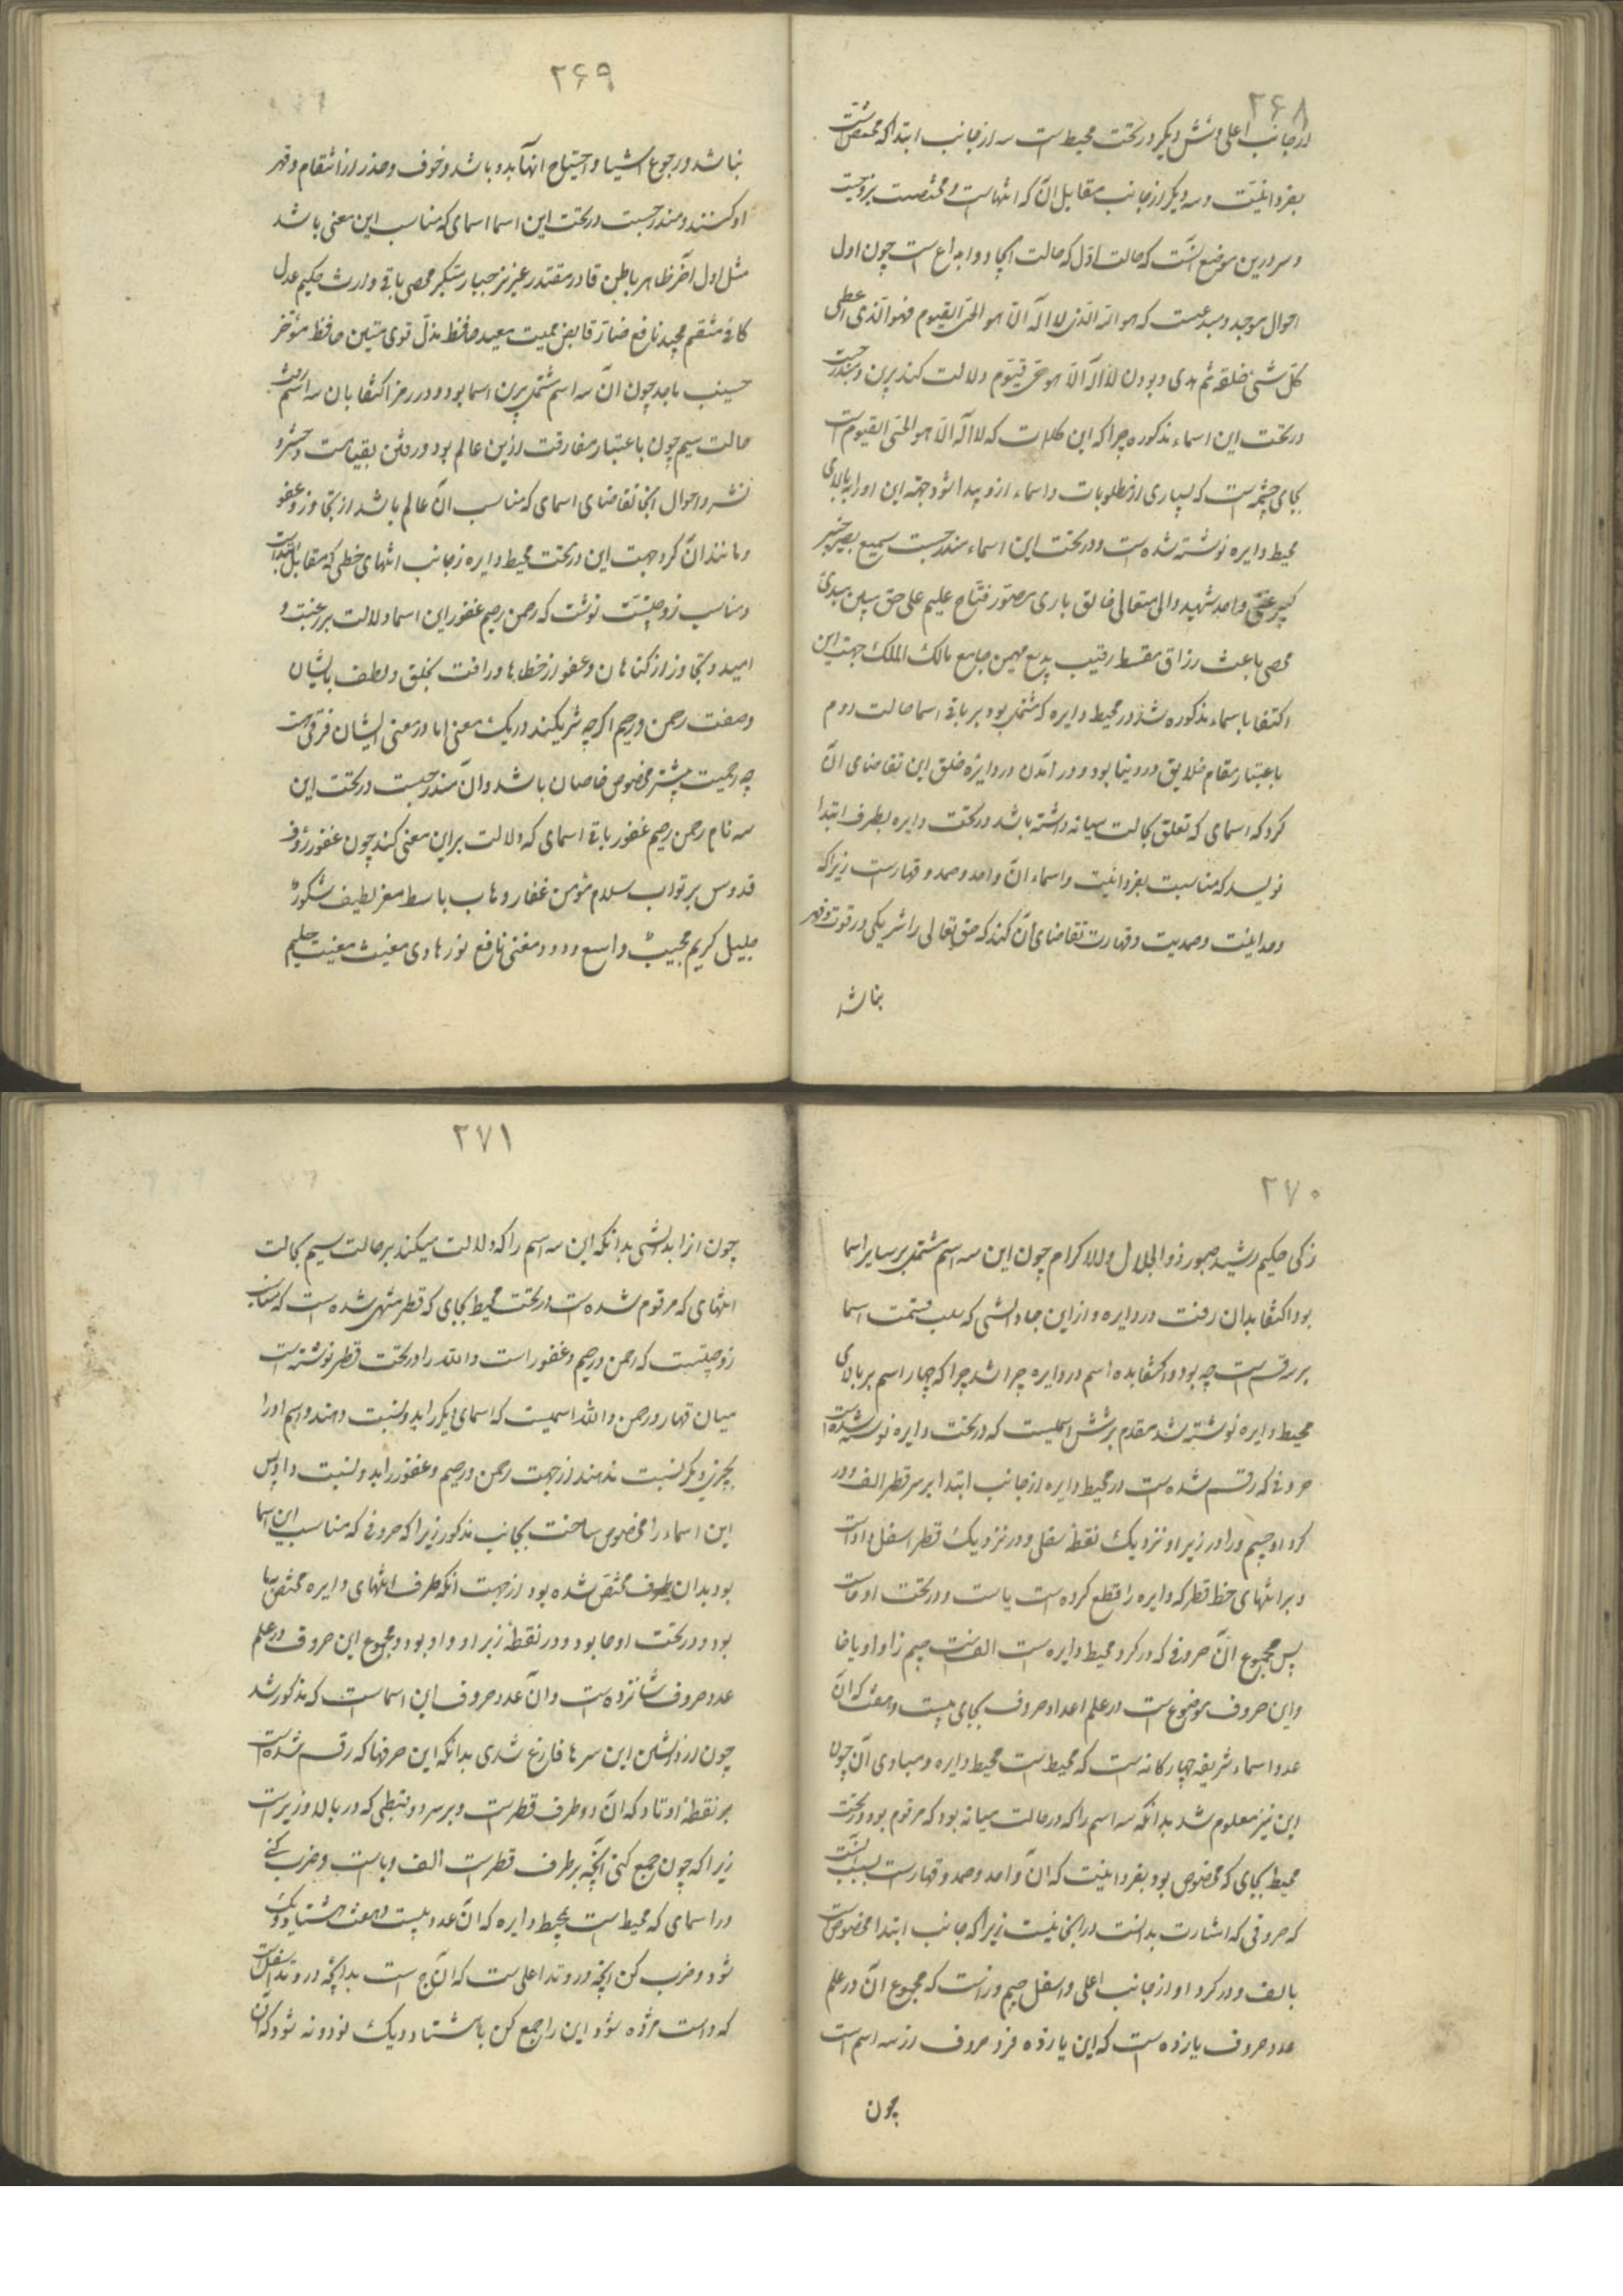 ۲۶۸
از جانب اعلی و شش دیگر در تحت محیط است سه از جانب ابتدا که مختص است
بفردانیّت و سه دیگر از جانب مقابل آن که انتهاست و مختصست بزوجیت
و سر درین موضع آنست که حالت اوّل که حالت ایجاد و ابداع است چون اول
احوال موجد و مبدعیست که هو الله الذی لا اله الّا هو الحیّ القیوم فهو الّذی اعطی
کلّ شیٔ خلقه ثم هدی و بودن لا اله الّا هو حیّ قیّوم دلالت کند برین و مندرجست
در تحت این اسماء مذکوره چرا که این کلمات که لا اله الّا هو الحیّ القیوم است
بجای چشمه است که بسیاری از مطلوبات و اسماء ازو پیدا شود جهة این او را به بالای
محیط دایره نوشته شده است و در تحت این اسماء مندرجست سمیع بصیر خبیر
کبیر غنی واحد شهید والی متعالی خالق باری مصوّر فتّاح علیم علی حق مبین مبدئ
محصی باعث رزاق مقسط رقیب بدیع مهیمن جامع مالک الملک جهت این
اکتفا باسماء مذکوره شد در محیط دایره که مشتمل بود بر باقی اسما حالت دوم
باعتبار مقام خلایق در دنیا بود و در آمدن در دایرۀ خلق این تقاضای آن
کرد که اسمای که تعلق بحالت میانه داشته باشد در تحت دایره بطرف ابتدا
نویسد که مناسبت بفردانیّت و اسماء آن واحد و صمد و قهارست زیرا که
وحدانیّت و صمدیت و قهاریت تقاضای آن کند که حق تعالی را شریکی در قوت و قهر
نباشد
۲۶۹
نباشد و رجوع اشیا و احتیاج آنها بدو باشد و خوف و حذر از انتقام و قهر
او کنند و مندرجست در تحت این اسما اسمای که مناسب این معنی باشد
مثل اول آخر ظاهر باطن قادر مقتدر عزیز جبار متکبر محصی باقی وارث حکیم عدل
کافی منتقم مجید نافع ضارّ قابض ممیت معید حافظ مذلّ قوی متین حافظ مؤخّر
حسیب ماجد چون آن سه اسم مشتمل برین اسما بود و در رمز اکتفا بان سه اسم رفت
حالت سیم چون باعتبار مفارقت ازین عالم بود و رفتن بقیامت و حشر و
نشر و احوال آنجا تقاضای اسمای که مناسب آن عالم باشد از تجاوز و عفو
و مانند آن کرد جهت این در تحت محیط دایره ز جانب انتهای خطی که مقابل ابتداست
و مناسب زوجیّتست نوشت که رحمن رحیم غفور این اسما دلالت بر رغبت و
امید و تجاوز از کناهان و عفو از خطاها و رافت بخلق و لطف بایشان
و صفت رحمن و رحیم اکرچه شریکند در یک معنی اما در معنی ایشان فرقی هست
چه رحمیت بیشتر مخصوص خاصان باشد و آن مندرجست در تحت این
سه نام رحمن رحیم غفور باقی اسمای که دلالت بر این معنی کند چون غفور رؤف
قدوس بر تواب سلام مؤمن غفار وهاب باسط معز لطیف شکور
جلیل کریم مجیب واسع ودود مغنی نافع نور هادی مغیث مقیت حلیم
۲۷۰
زکی حکیم رشید صبور ذو الجلال و الاکرام چون این سه اسم مشتمل بر سایر اسما
بود اکتفا بدان رفت در دایره و از این جا دانستی که سبب قسمت اسما
بر سه قسم است چه بود و اکتفا بده اسم در دایره چرا شد چرا که چهار اسم بر بالای
محیط دایره نوشته شد مقدم بر شش اسمیست که در تحت دایره نوشته شده است
حروفی که رقم شده است در محیط دایره از جانب ابتدا بر سر قطر الف و در
کرد او جیم و را و در زیر او نزدیک نقطۀ سفلی و در نزدیک قطر اسفل واو است
و بر انتهای خط قطر که دایره را قطع کرده است یا است و در تحت او حاست
پس مجموع آن حروفی که در کرد محیط دایره است الفست جیم زا واو یا حا
و این حروف موضوع است در علم اعداد حروف بجای بیست و هفت که آن
عدد اسماء شریفه چهارکانه است که محیط است محیط دایره و مساوی آن چون
این نیز معلوم شد بدانکه سه اسم را که در حالت میانه بود که مرقوم بود در تحت
محیط بجای که مخصوص بود بفردانیّت که آن واحد و صمد و قهارست بسبب آنست
که حروفی که اشارت بدانست در آنجا نیست زیرا که جانب ابتدا مخصوص است
بالف و در کرد او از جانب اعلی و اسفل جیم و زاست که مجموع آن در علم
عدد حروف یازده است که این یازده فرد حروف از سه اسم است
چون
۲۷۱
چون از ابدانستی بدانکه این سه اسم را که دلالت میکند بر حالت سیم بحالت
انتهای که مرقوم شده است در تحت محیط بجای که قطر منتهی شده است که مناسب
زوجیّتست که رحمن و رحیم و غفور است و الله را در تحت قطر نوشته است
میان قهار و رحمن و الله اسمیست که اسمای دیکر را بدو نسبت دهند و اسم او را
بچیزی دیکر نسبت ندهند از جهت رحمن و رحیم و غفور را بدو نسبت داد پس
این اسماء را مخصوص ساخت بجانب مذکور زیرا که حروفی که مناسب این اسما
بود بدان طرف مختصّ شده بود از جهت آنکه طرف انتهای دایره مختصّ بیا
بود و در تحت او حا بود و در نقطۀ زیر او واو بود و مجموع این حروف در علم
عدد حروف شانزده است و آن عدد حروف این اسماست که مذکور شد
چون از دانستن این سرها فارغ شدی بدانکه این حرفها که رقم شده است
بر نقطۀ اوتاد که آن دو طرف قطرست و بر سر دو نبطی که در بالا و زیر است
زیرا که چون جمع کنی آنچه بر طرف قطرست الف و یاست و ضرب کنی
در اسمای که محیط است بمحیط دایره که آن عدد بیست و هفت هشتاد و یک
شود و ضرب کن آنچه در وتد اعلی ست که آن ج است بدآنچه در وتد اسفل است
که واست هژده شود این را جمع کن با هشتاد و یک نود و نه شود که آن